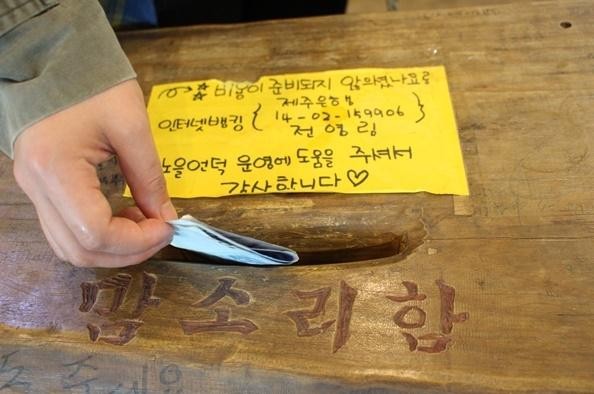 ☆ 비용이 준비되지 않으셨나요?
인터넷뱅킹 { 제주은행
14-02-159906
전영림 }
노을언덕 운영에 도움을 주셔서
감사합니다♡
맘소리함